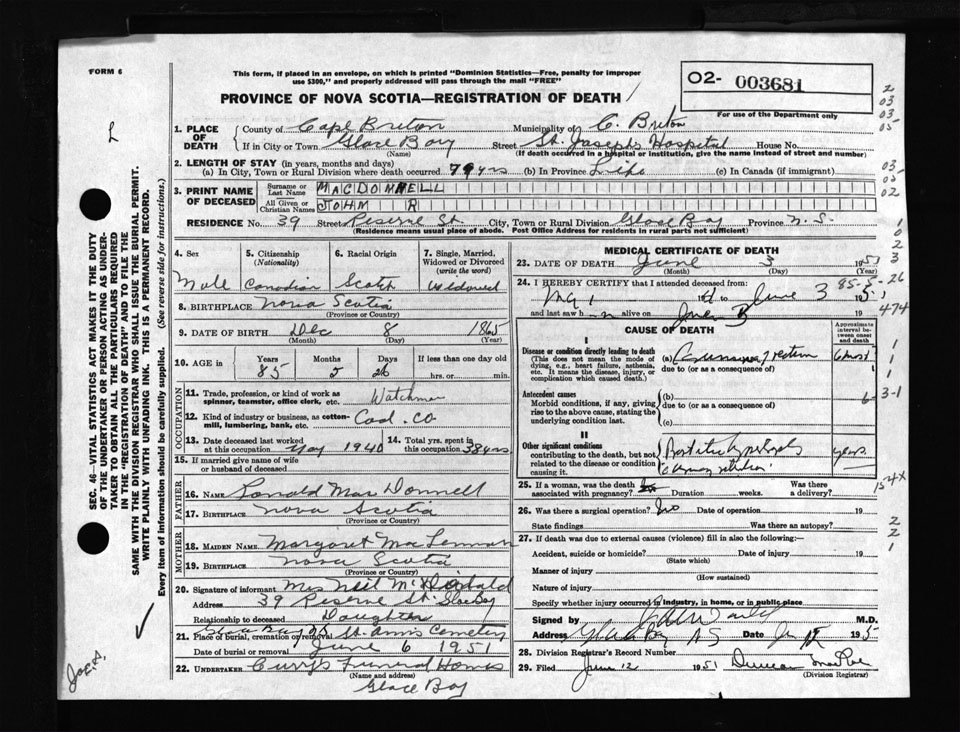 FORM 6
This form, if placed in an envelope, on which is printed "Dominion Statistics—Free, penalty for improper
use $300," and properly addressed will pass through the mail "FREE"
O2- 003681
For use of the Department only
PROVINCE OF NOVA SCOTIA—REGISTRATION OF DEATH
1. PLACE OF DEATH County of Cape Breton Municipality of C. Breton
If in City or Town Glace Bay Street St. Josephs Hospital House No.
(Name) (If death occurred in a hospital or institution, give the name instead of street and number)
2. LENGTH OF STAY (in years, months and days)
(a) In City, Town or Rural Division where death occurred yrs (b) In Province Life (c) In Canada (if immigrant)
3. PRINT NAME OF DECEASED Surname or Last Name MACDONNELL
All Given or Christian Names JOHN R
RESIDENCE No. 39 Street Reserve St. City, Town or Rural Division Glace Bay Province N.S.
(Residence means usual place of abode. Post Office Address for residents in rural parts not sufficient)
4. Sex Male
5. Citizenship (Nationality) Canadian
6. Racial Origin Scotch
7. Single, Married, Widowed or Divorced (write the word) Widowed
8. BIRTHPLACE Nova Scotia
(Province or Country)
9. DATE OF BIRTH Dec 8 1865
(Month) (Day) (Year)
10. AGE in Years Months Days If less than one day old
85 5 26 hrs. or min.
OCCUPATION
11. Trade, profession, or kind of work as spinner, teamster, office clerk, etc. Watchman
12. Kind of industry or business, as cotton-mill, lumbering, bank, etc. Coal. Co
13. Date deceased last worked at this occupation May 1940
14. Total yrs. spent in this occupation 38 yrs
15. If married give name of wife or husband of deceased
FATHER
16. NAME Ronald MacDonnell
17. BIRTHPLACE Nova Scotia
(Province or Country)
MOTHER
18. MAIDEN NAME Margaret MacLennan
19. BIRTHPLACE Nova Scotia
(Province or Country)
20. Signature of informant Mrs Neil McDonald
Address 39 Reserve St. Glace Bay
Relationship to deceased Daughter
21. Place of burial, cremation or removal Glace Bay St. Anns Cemetery
Date of burial or removal June 6 1951
22. UNDERTAKER Curry's Funeral Home
(Name and address)
Glace Bay
MEDICAL CERTIFICATE OF DEATH
23. DATE OF DEATH June 3 1951
(Month) (Day) (Year)
24. I HEREBY CERTIFY that I attended deceased from:
to June 3
and last saw h m alive on June 19
CAUSE OF DEATH
Approximate interval between onset and death
I
Disease or condition directly leading to death (a)
(This does not mean the mode of dying, e.g., heart failure, asthenia, etc. It means the disease, injury, or complication which caused death.)
due to (or as a consequence of)
Antecedent causes (b)
Morbid conditions, if any, giving rise to the above cause, stating the underlying condition last.
due to (or as a consequence of)
(c)
II
Other significant conditions contributing to the death, but not related to the disease or condition causing it.
years
25. If a woman, was the death associated with pregnancy? Duration weeks. Was there a delivery?
26. Was there a surgical operation? no Date of operation 19
State findings Was there an autopsy?
27. If death was due to external causes (violence) fill in also the following:—
Accident, suicide or homicide? Date of injury 19
(State which)
Manner of injury
(How sustained)
Nature of injury
Specify whether injury occurred in industry, in home, or in public place
Signed by M.D.
Address Glace Bay NS Date 195
28. Division Registrar's Record Number
29. Filed June 12 1951 Duncan
(Division Registrar)
SEC. 46—VITAL STATISTICS ACT MAKES IT THE DUTY
OF THE UNDERTAKER OR PERSON ACTING AS UNDER-
TAKER TO OBTAIN ALL THE PARTICULARS REQUIRED
IN THE "REGISTRATION OF DEATH" AND TO FILE THE
SAME WITH THE DIVISION REGISTRAR WHO SHALL ISSUE THE BURIAL PERMIT.
WRITE PLAINLY WITH UNFADING INK. THIS IS A PERMANENT RECORD.
Every item of information should be carefully supplied. (See reverse side for instructions.)